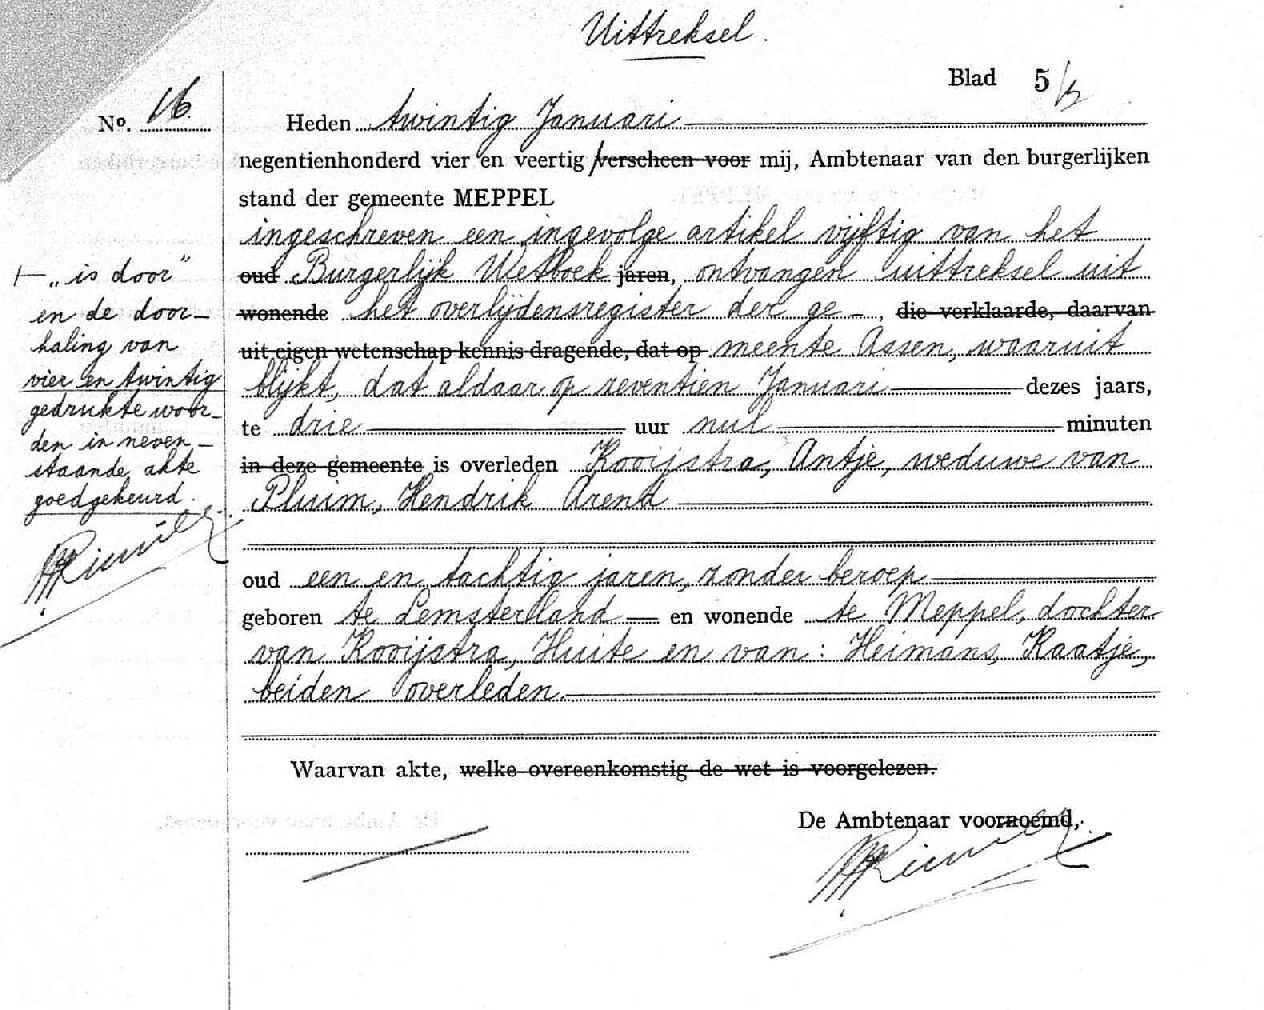 Uittreksel.
Blad 5
No. 16.
Heden twintig Januari
negentienhonderd vier en veertig verscheen voor mij, Ambtenaar van den burgerlijken
stand der gemeente MEPPEL
ingeschreven een ingevolge artikel vijftig van het
oud Burgerlijk Wetboek jaren, ontvangen uittreksel uit
wonende het overlijdensregister der ge-, die verklaarde, daarvan
uit eigen wetenschap kennis dragende, dat op meente Assen, waaruit
blijkt, dat aldaar op zeventien Januari dezes jaars,
te drie uur nul minuten
in deze gemeente is overleden Kooijstra, Antje, weduwe van
Pluim, Hendrik Arend
oud een en tachtig jaren, zonder beroep
geboren te Lemsterland en wonende te Meppel, dochter
van Kooijstra, Huite en van: Heimans, Kaatje,
beiden overleden.
Waarvan akte, welke overeenkomstig de wet is voorgelezen.
De Ambtenaar voornoemd,
⊢ „is door”
en de door-
haling van
vier en twintig
gedrukte woor-
den in neven-
staande akte
goedgekeurd.